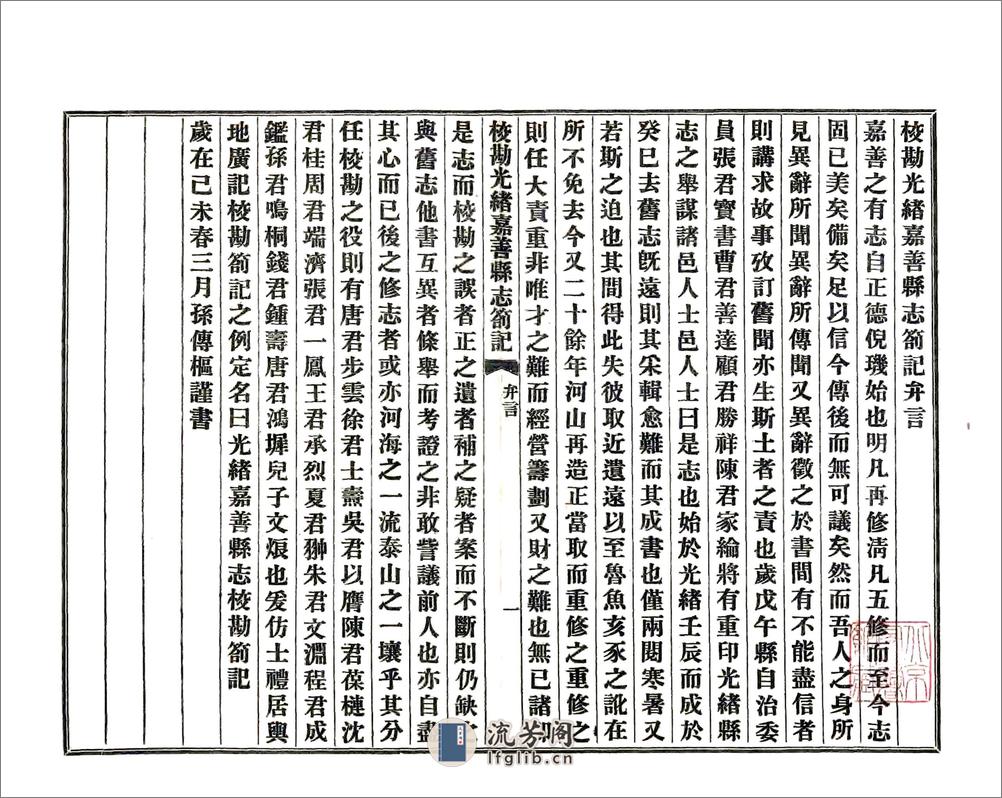 校勘光緒嘉善縣志劄記弁言
嘉善之有志自正德倪璣始也明凡再修淸凡五修而至今志
固已美矣備矣足以信今傳後而無可議矣然而吾人之身所
見異辭所聞異辭所傳聞又異辭徵之於書間有不能盡信者
則講求故事攷訂舊聞亦生斯土者之責也歲戊午縣自治委
員張君寶書曹君善達顧君勝祥陳君家綸將有重印光緒縣
志之舉謀諸邑人士邑人士曰是志也始於光緒壬辰而成於
癸巳去舊志旣遠則其采輯愈難而其成書也僅兩閱寒暑又
若斯之迫也其間得此失彼取近遺遠以至魯魚亥豕之訛在
所不免去今又二十餘年河山再造正當取而重修之重修之
則任大責重非唯才之難而經營籌劃又財之難也無已諸卽
校勘光緒嘉善縣志劄記
弁言
一
是志而校勘之誤者正之遺者補之疑者案而不斷則仍缺之
與舊志他書互異者條舉而考證之非敢訾議前人也亦自盡
其心而已後之修志者或亦河海之一流泰山之一壤乎其分
任校勘之役則有唐君步雲徐君士燾吳君以膺陳君葆槤沈
君桂周君端濟張君一鳳王君承烈夏君翀朱君文淵程君成
鑑孫君鳴桐錢君鍾壽唐君鴻墀兒子文烺也爰仿士禮居輿
地廣記校勘劄記之例定名曰光緒嘉善縣志校勘劄記
歲在己未春三月孫傳樞謹書
流芳阁
lfglib.cn